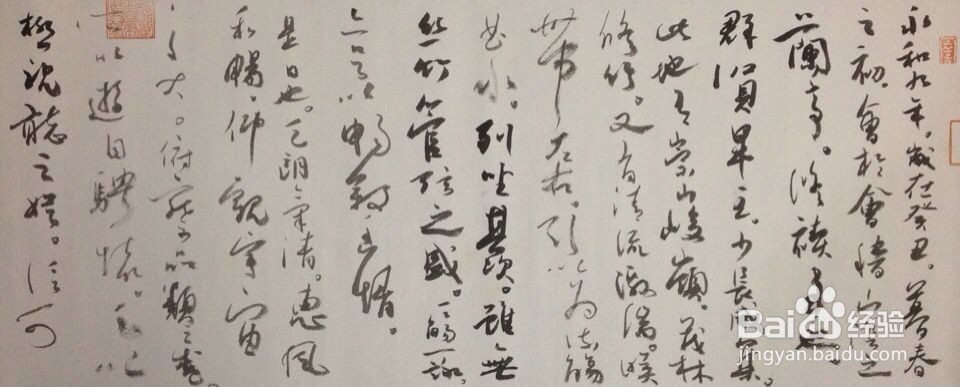 永和九年。歲在癸丑。暮春
之初。會於會稽山陰之
蘭亭。修禊事也
群賢畢至。少長咸集。
此地有崇山峻嶺。茂林
修竹。又有清流激湍。暎
帶左右。引以為流觴
曲水。列坐其次。雖無
絲竹管弦之盛。一觴一詠。
亦足以暢敘幽情。
是日也。天朗氣清。惠風
和暢。仰觀宇宙
之大。俯察品類之盛。
所以遊目騁懷。足以
極視聽之娛。信可
Baidu经验
jingyan.baidu.com